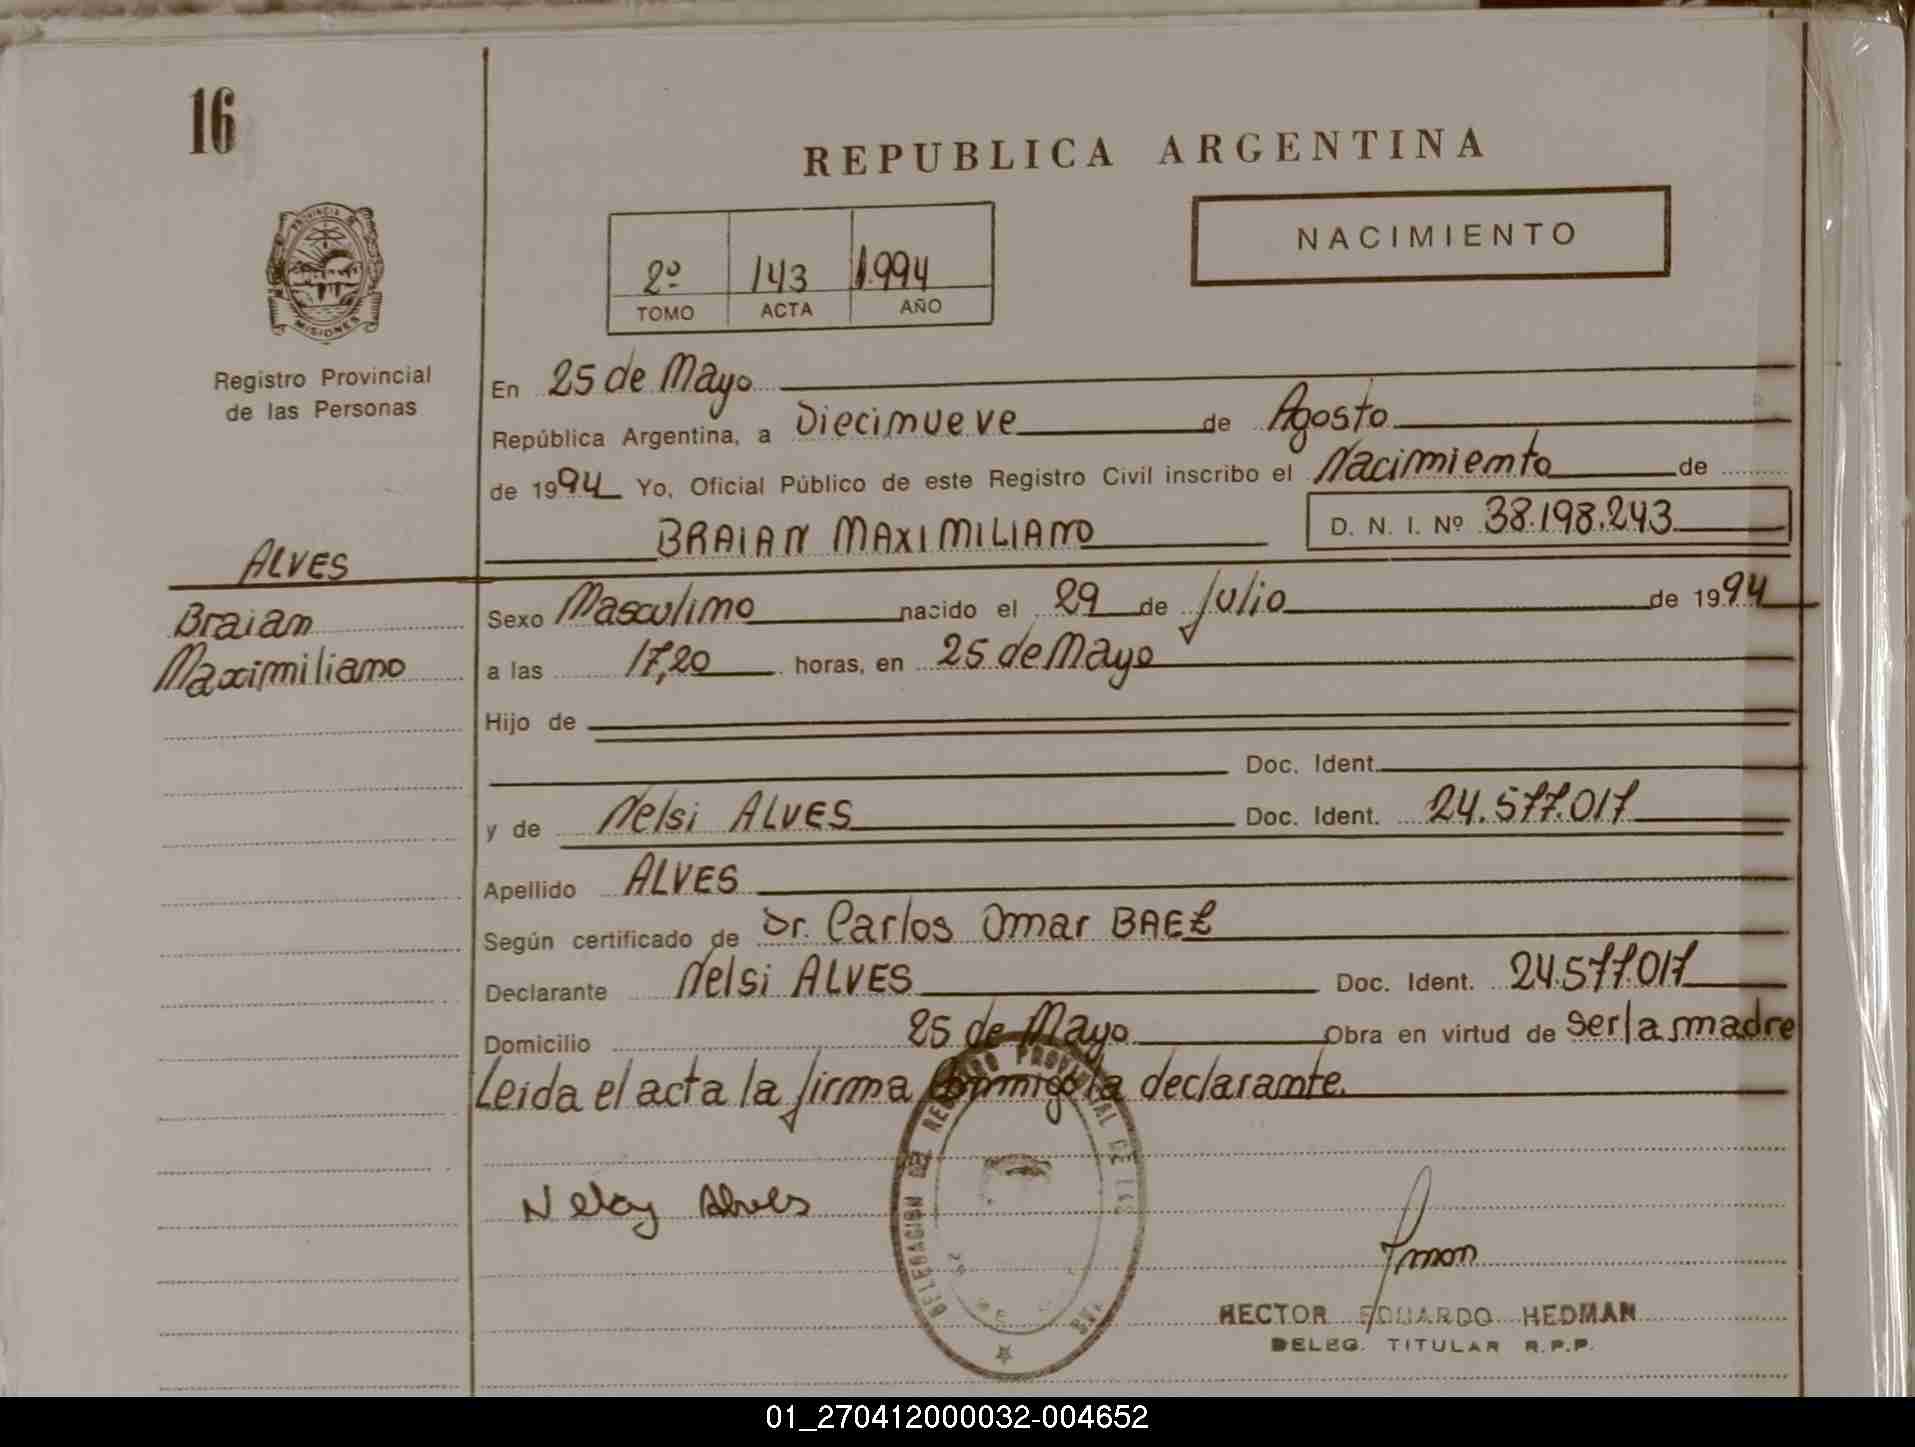 16
REPUBLICA ARGENTINA
NACIMIENTO
2º 143 1.994
TOMO ACTA AÑO
PROVINCIA DE
MISIONES
Registro Provincial
de las Personas
En 25 de Mayo
República Argentina, a Diecinueve de Agosto
de 1994 Yo, Oficial Público de este Registro Civil inscribo el Nacimiento de
BRAIAN MAXIMILIANO D. N. I. Nº 38.198.243
ALVES
Braian
Maximiliano
Sexo Masculino nacido el 29 de Julio de 1994
a las 17,20 horas, en 25 de Mayo
Hijo de
Doc. Ident.
y de Nelsi ALVES Doc. Ident. 24.577.017
Apellido ALVES
Según certificado de Dr. Carlos Omar BAEZ
Declarante Nelsi ALVES Doc. Ident. 24.577.017
Domicilio 25 de Mayo Obra en virtud de ser la madre
Leida el acta la firma conmigo la declarante.
DELEGACION DE REGISTRO PROVINCIAL DE LAS
Alves
HECTOR EDUARDO HEDMAN
DELEG. TITULAR R.P.P.
01_270412000032-004652